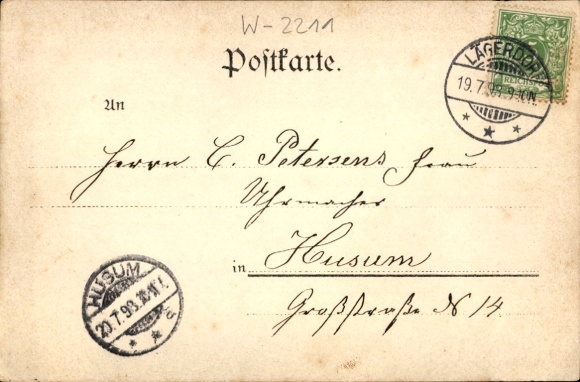 W-2211
Postkarte.
LÄGERDORF
19.7.98. 9-10N.
REICHSPOST
An
Herrn C. Petersens Frau
Uhrmacher
in Husum
Großstraße No 14
HUSUM
20.7.98. 10-11V.